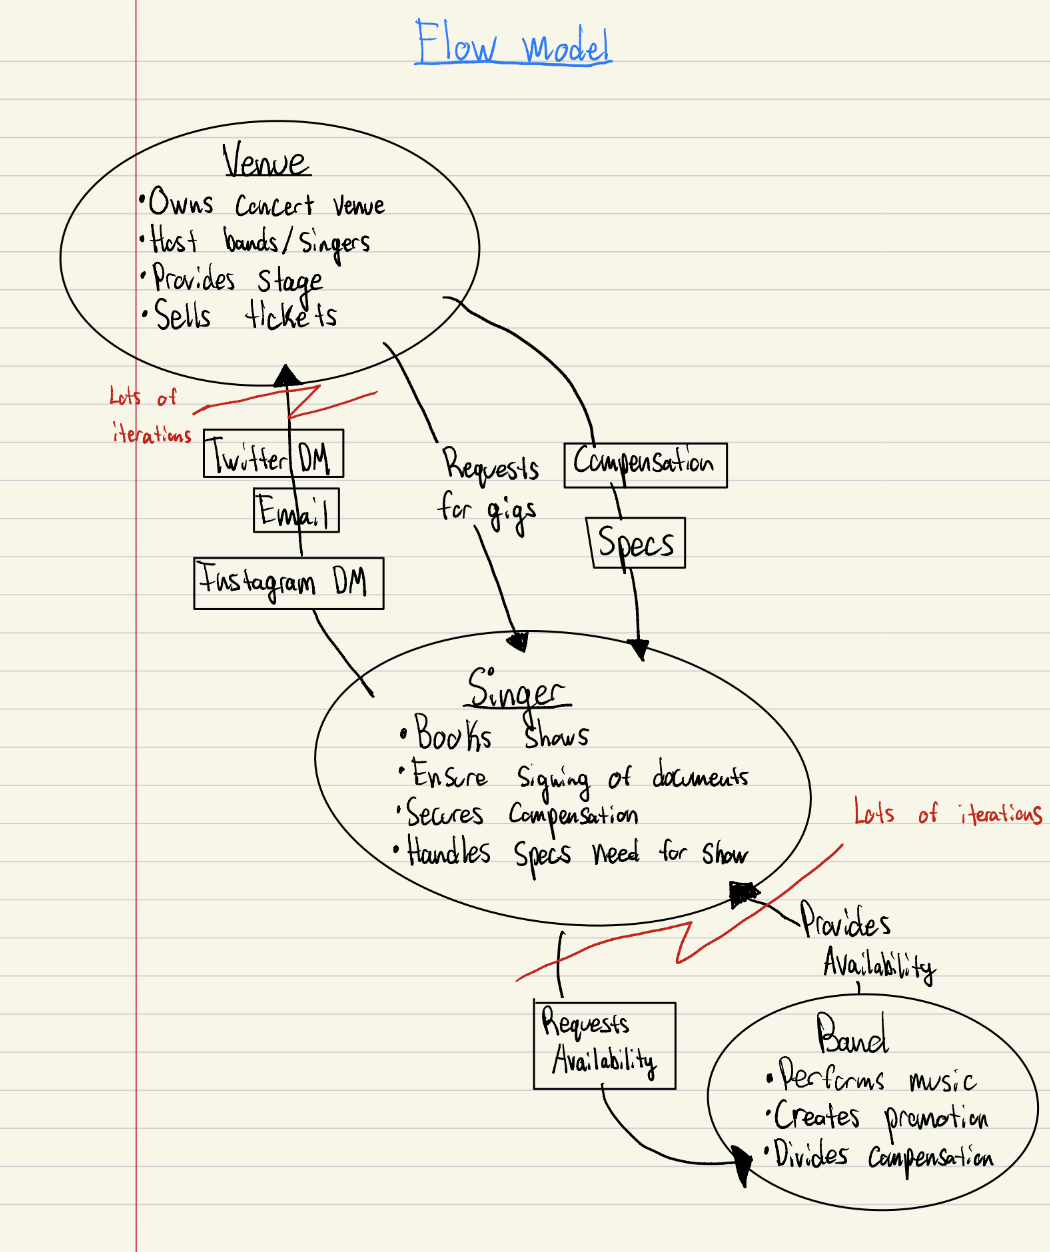 Flow model
Venue
•Owns concert venue
•Host bands/singers
•Provides stage
•Sells tickets
Lots of
iterations
Twitter DM
Email
Instagram DM
Requests
for gigs
Compensation
Specs
Singer
•Books shows
•Ensure signing of documents
•Secures compensation
•Handles specs need for show
Lots of iterations
Provides
Availability
Requests
Availability
Band
•Performs music
•Creates promotion
•Divides compensation